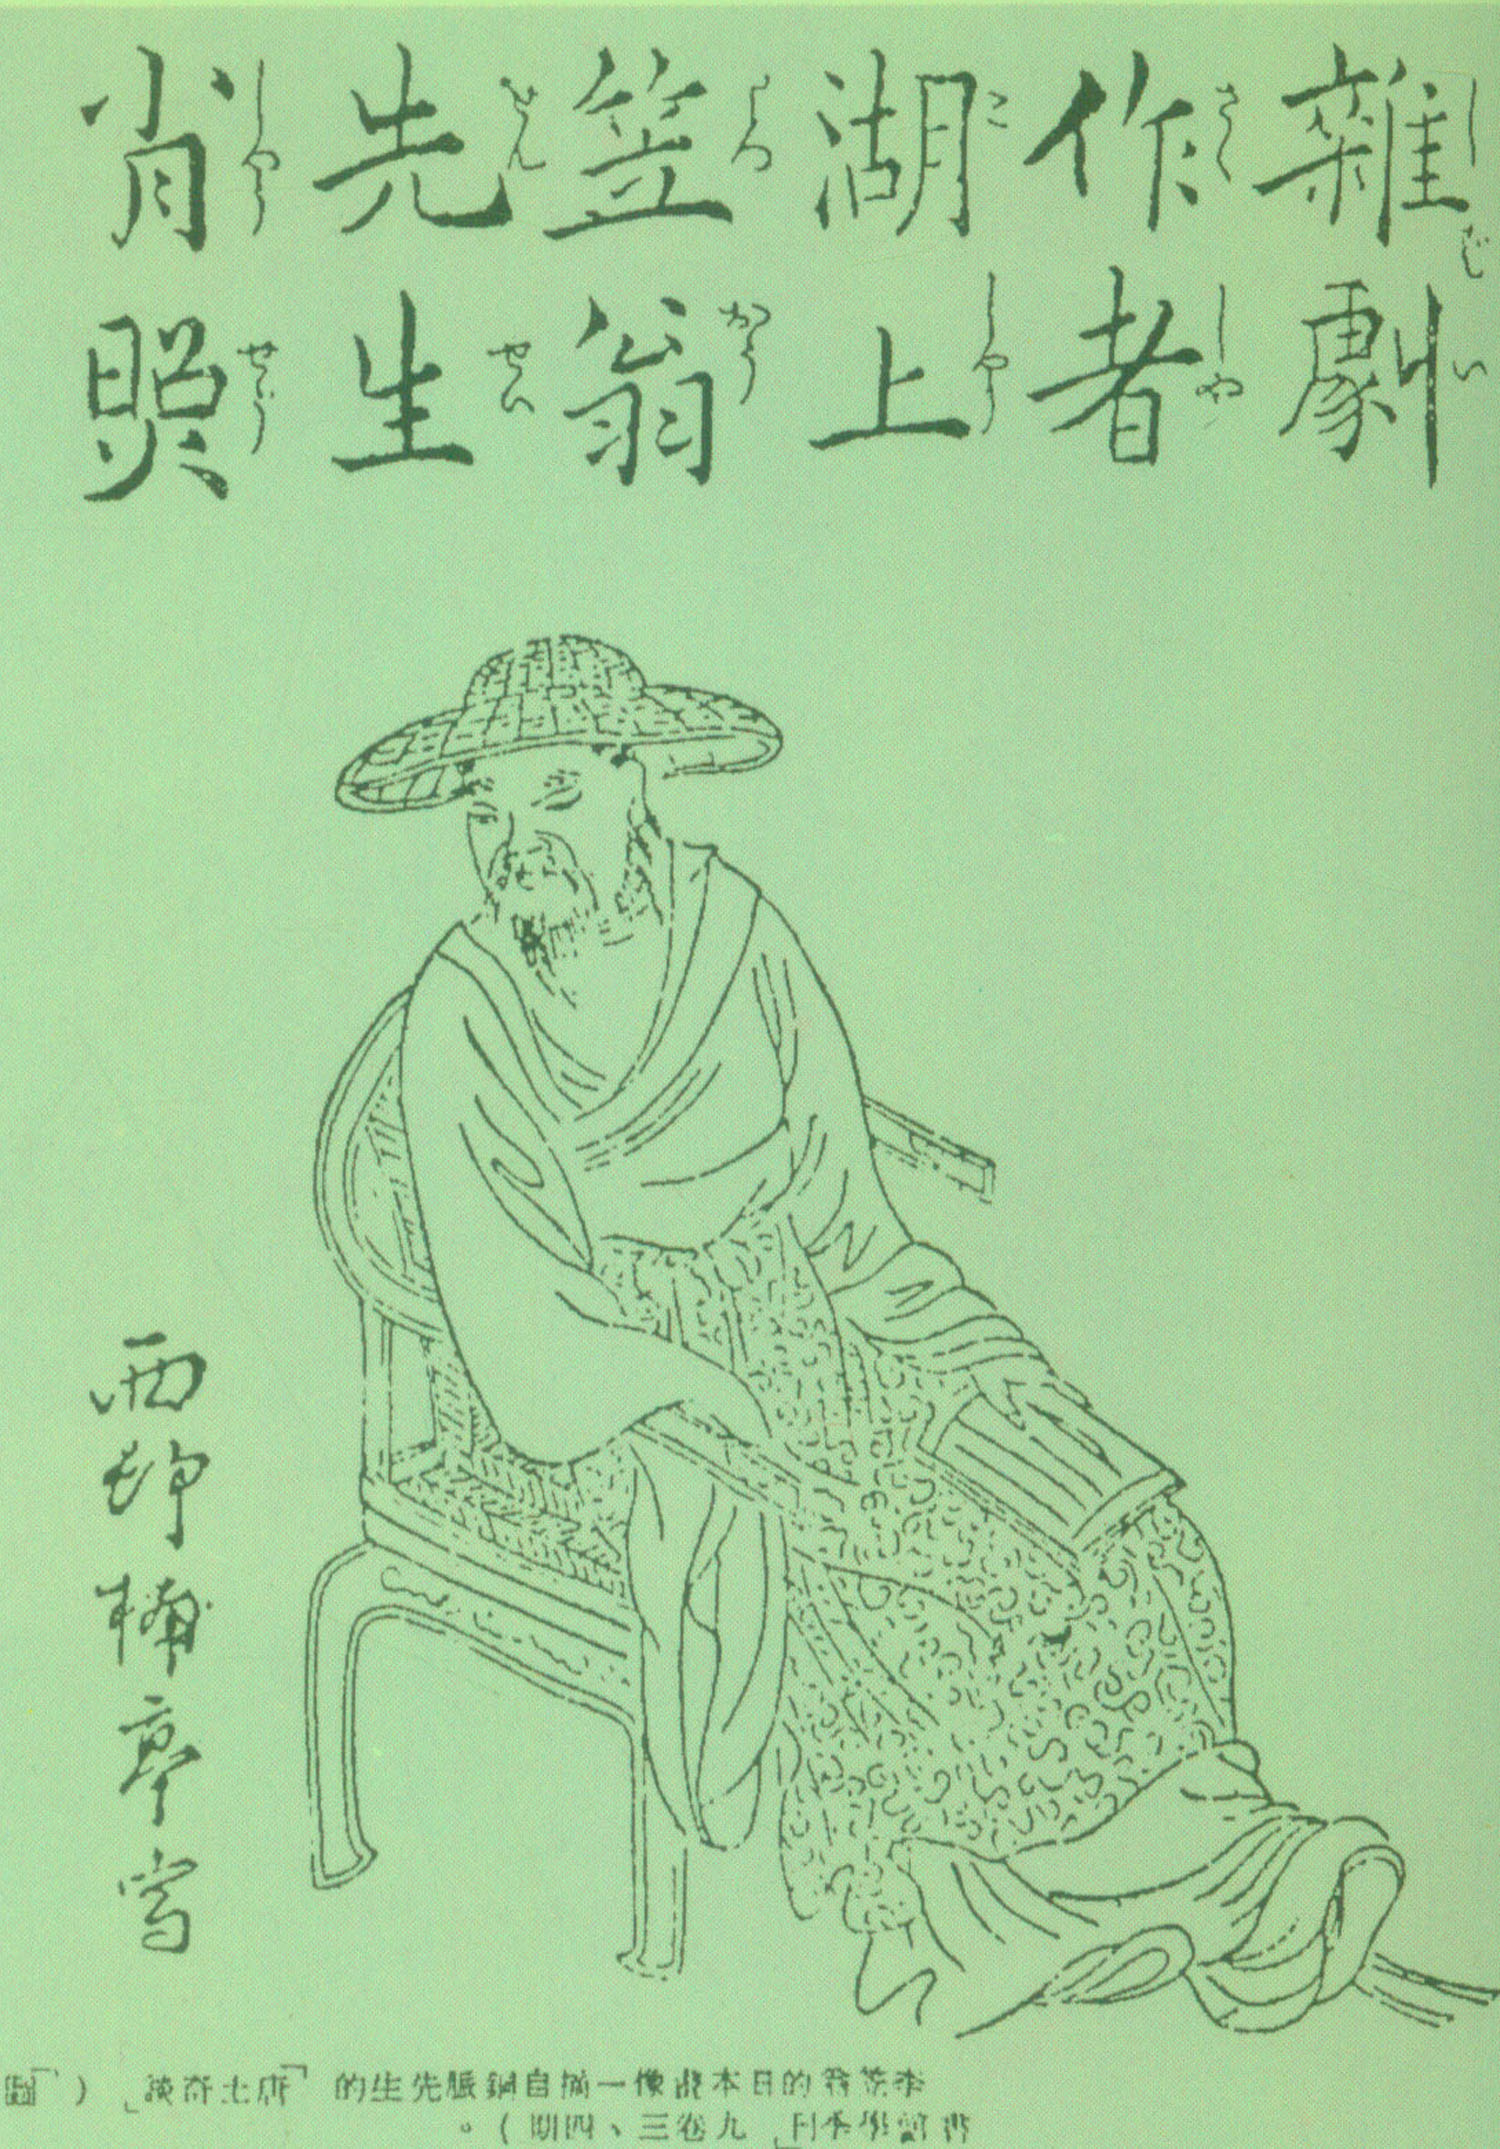 雜劇
作者
湖上
笠翁
先生
肖照
さくしや
こしやう
りつ
せんせい
しやうせう
西邨楠亭写
李笠翁的日本像一摘自銅脈先生的「唐土奇談」(「圖
書館學季刊」九卷三、四期)。